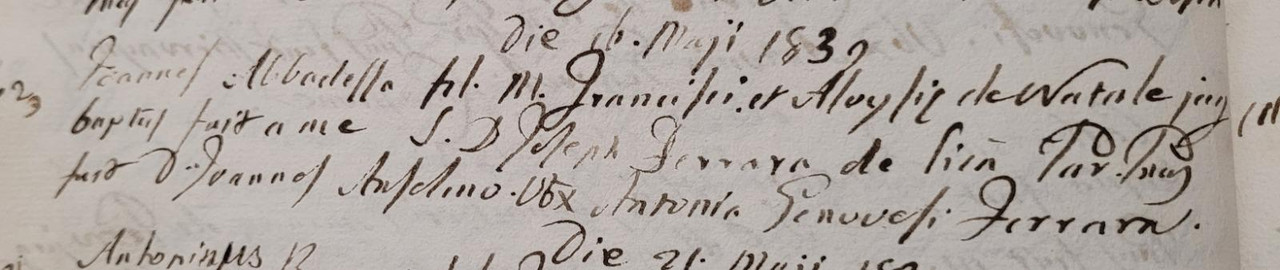 Die 16. Maji 1839
Joannes Abbadessa fil. M. Francisci, et Aloysiæ de Natale jug
baptus fuit a me S. D Joseph Ferrara de licã Par. Pnus
fuit D. Joannes Anselmo. Obx Antonia Genovesi Ferrara.
Antoninus
Die 21. Maji